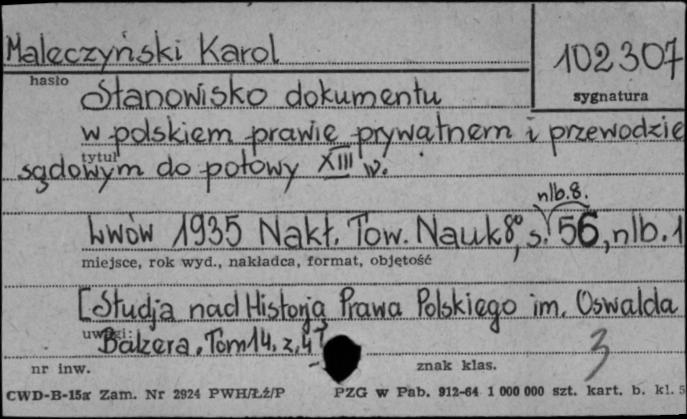 Maleczyński Karol
102307
hasło
sygnatura
Stanowisko dokumentu
w polskiem prawie prywatnem i przewodzie
tytuł
sądowym do połowy XIII w.
nlb. 8.
Lwów 1935 Nakł. Tow. Nauk 8°, s. 56, nlb. 1
miejsce, rok wyd., nakładca, format, objętość
[Studja nad Historją Prawa Polskiego im. Oswalda
uwagi:
Balzera. Tom 14. z. 4]
3
nr inw.
znak klas.
CWD-B-15a Zam. Nr 2924 PWH/Łź/P PZG w Pab. 912-64 1 000 000 szt. kart. b. kl. 5